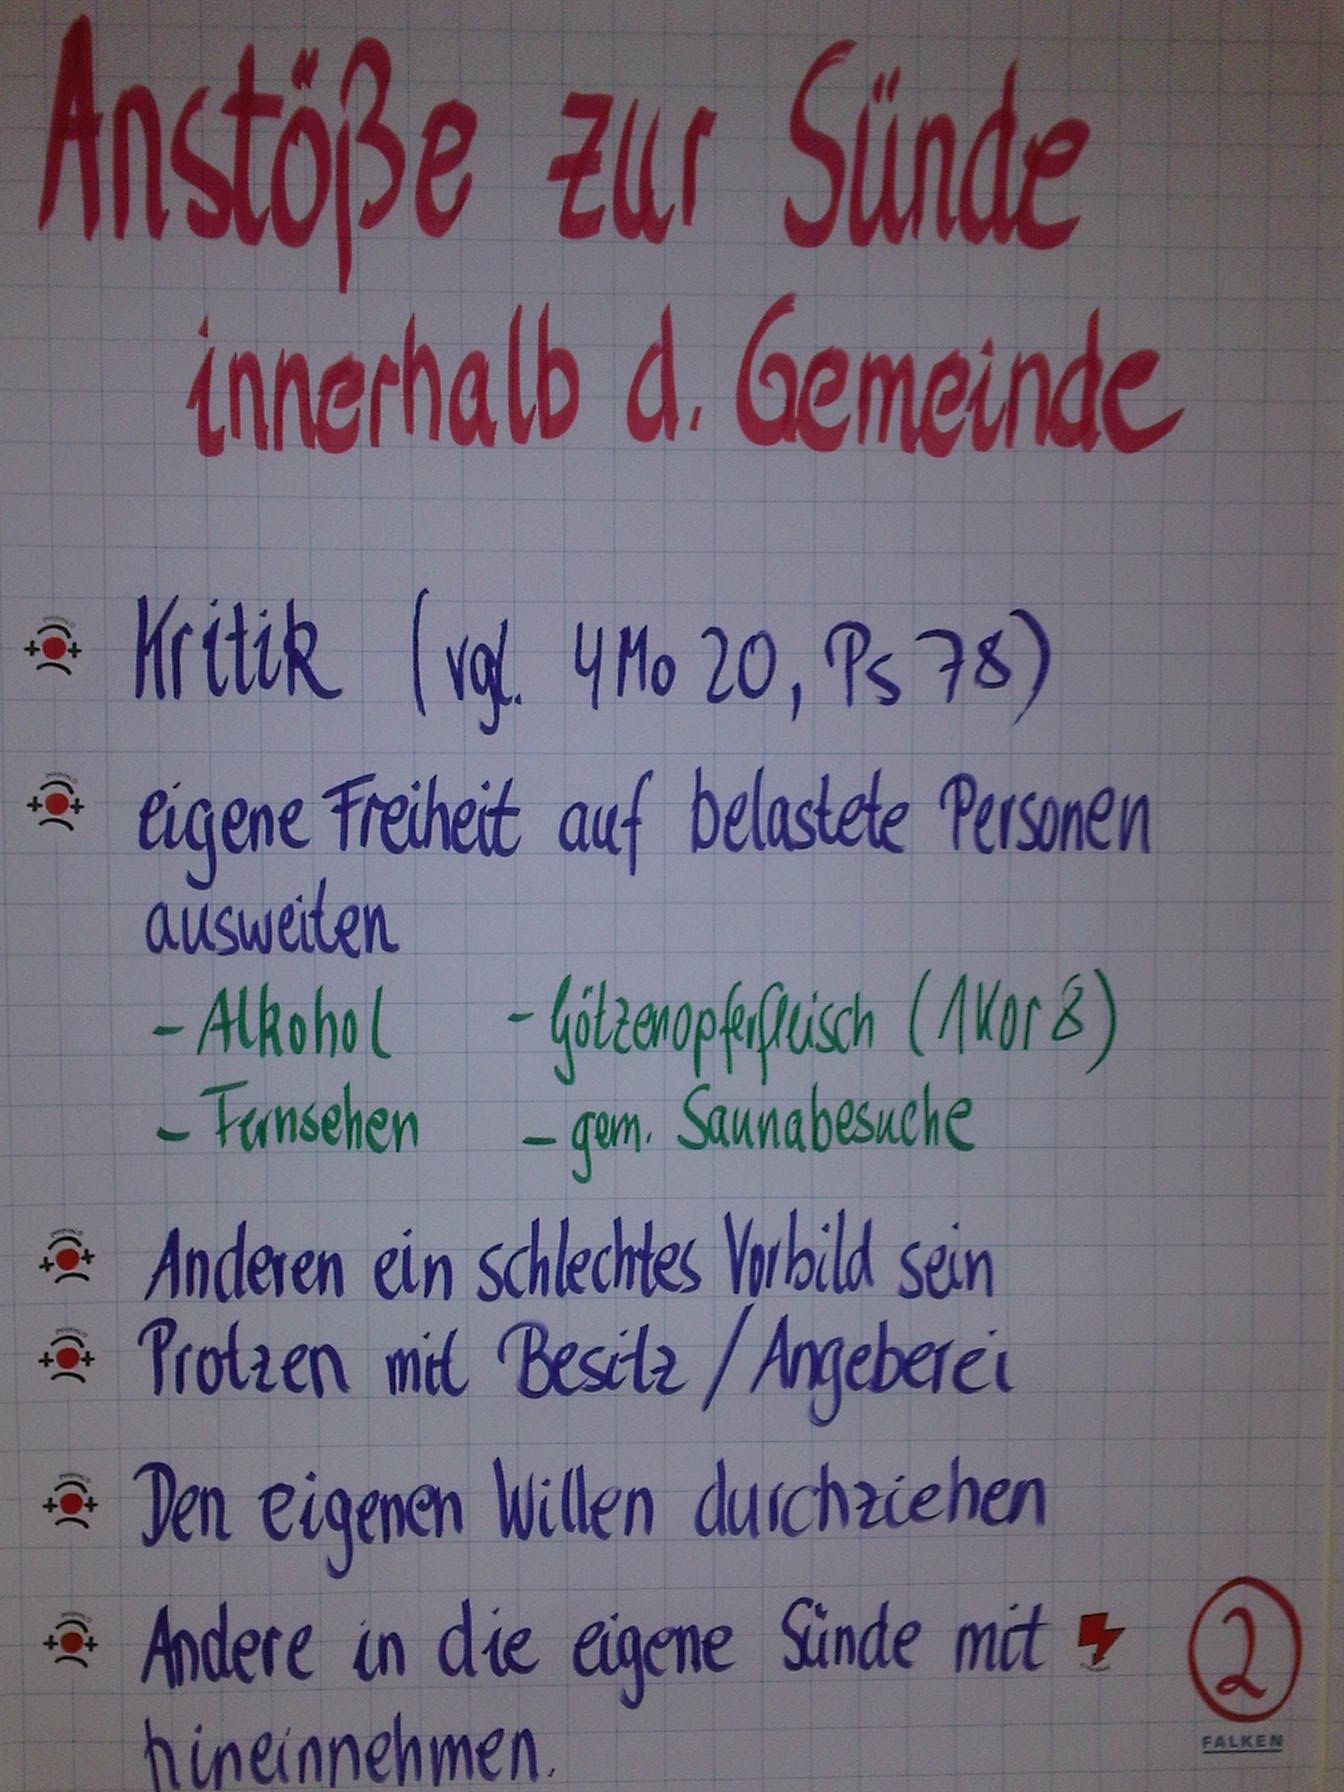 Anstöße zur Sünde
innerhalb d. Gemeinde
Kritik (vgl. 4Mo 20, Ps 78)
eigene Freiheit auf belastete Personen
ausweiten
- Alkohol - Götzenopferfleisch (1Kor 8)
- Fernsehen - gem. Saunabesuche
Anderen ein schlechtes Vorbild sein
Protzen mit Besitz / Angeberei
Den eigenen Willen durchziehen
Andere in die eigene Sünde mit
hineinnehmen.
2
FALKEN